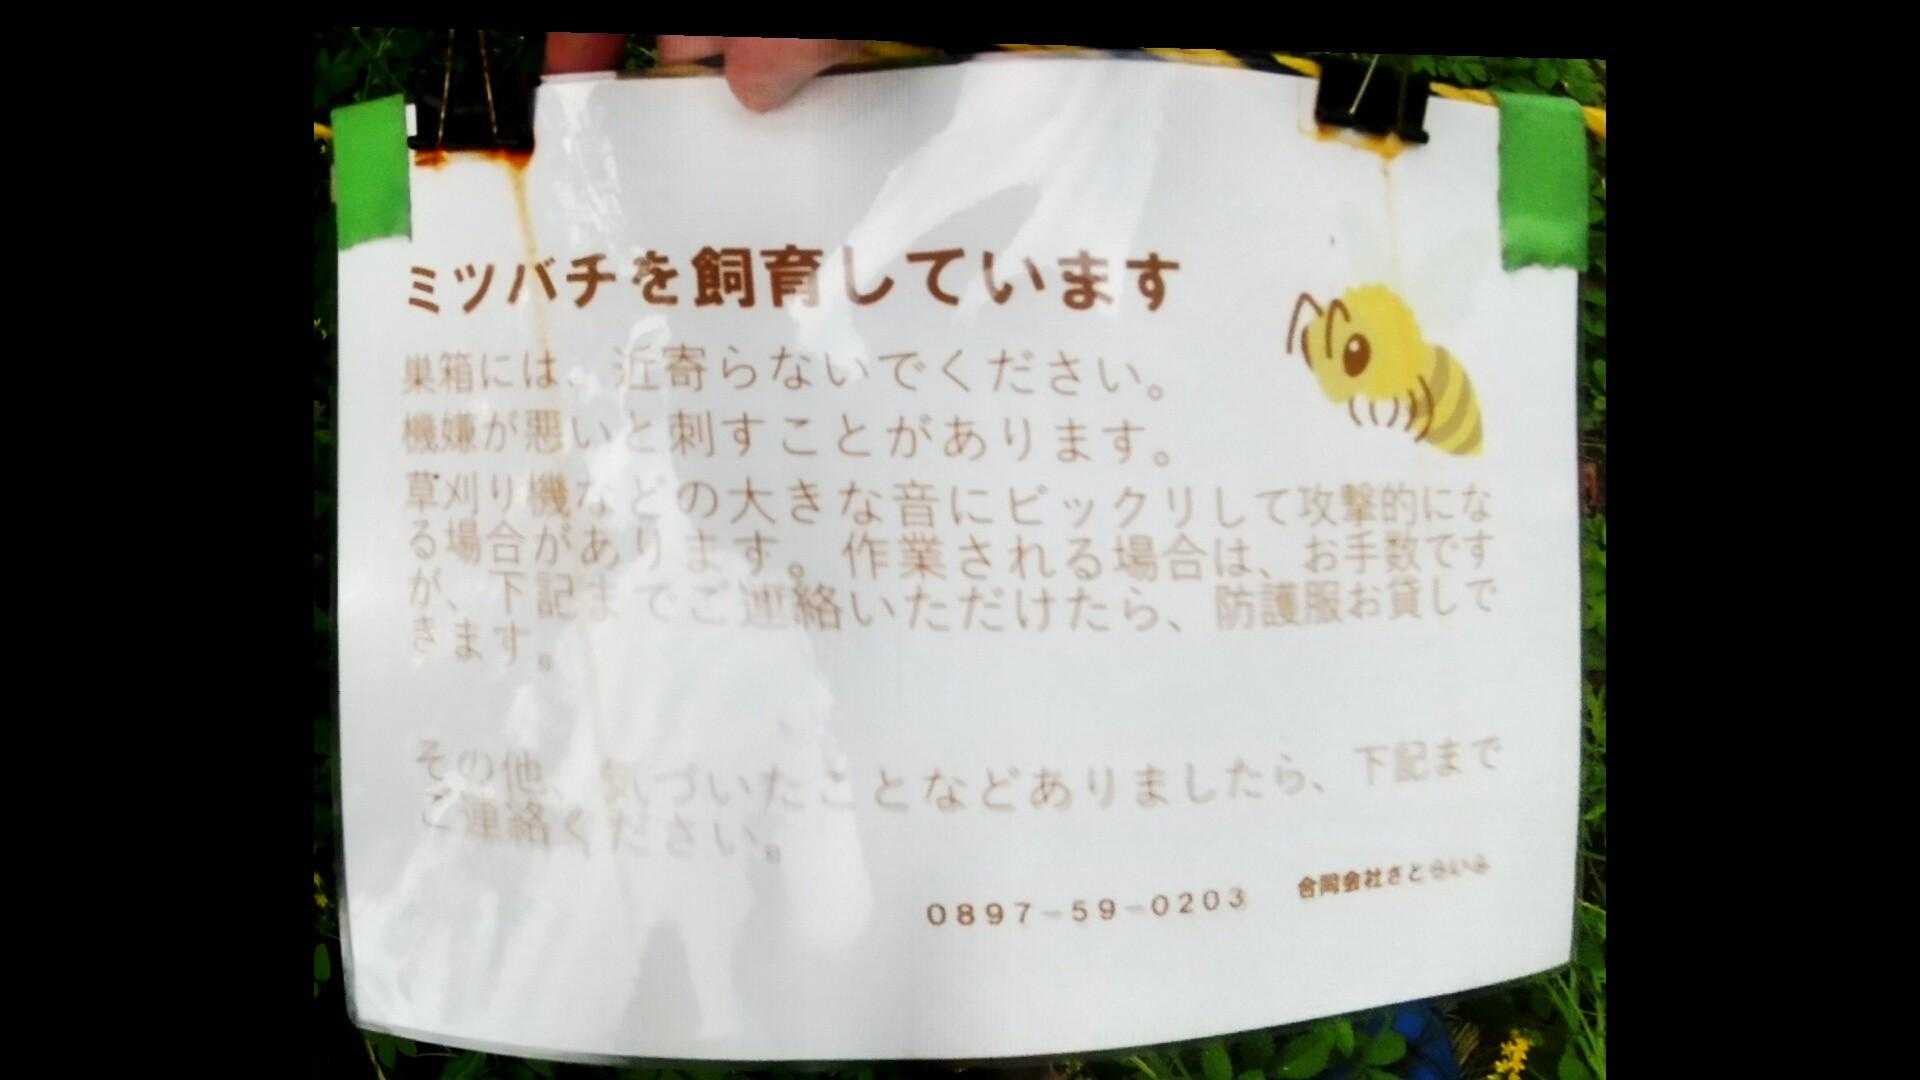 ミツバチを飼育しています
巣箱には、近寄らないでください。
機嫌が悪いと刺すことがあります。
草刈り機などの大きな音にビックリして攻撃的にな
る場合があります。作業される場合は、お手数です
が、下記までご連絡いただけたら、防護服お貸しで
きます。
その他、気づいたことなどありましたら、下記まで
ご連絡ください。
0897-59-0203 合同会社さとらいふ